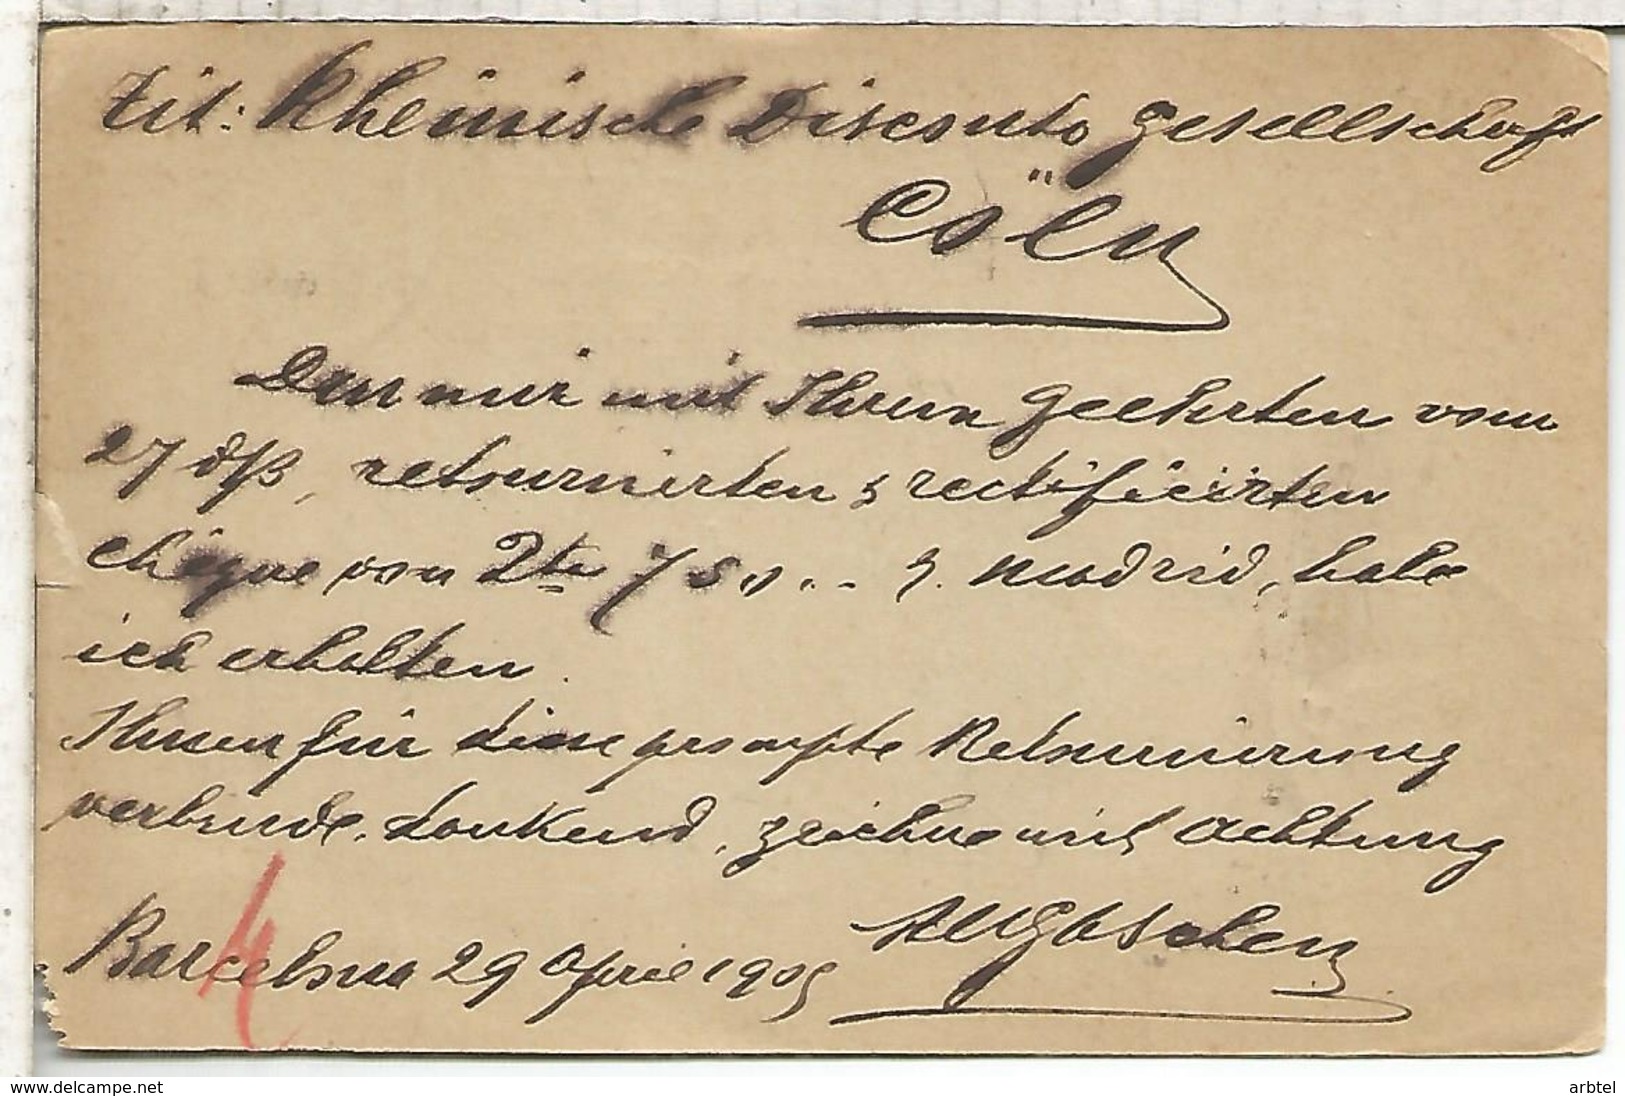 Tit: Rheinische Disconto Gesellschaft
Cöln
Den mir mit Ihrem Geehrten vom
27 dß, retournierten & rectificirten
chèque von 750 Madrid, habe
ich erhalten.
Ihnen für die prompte Retournierung
verbunde. dankend, zeichne mit Achtung
Barcelona 29 April 1905
www.delcampe.net
arbtel